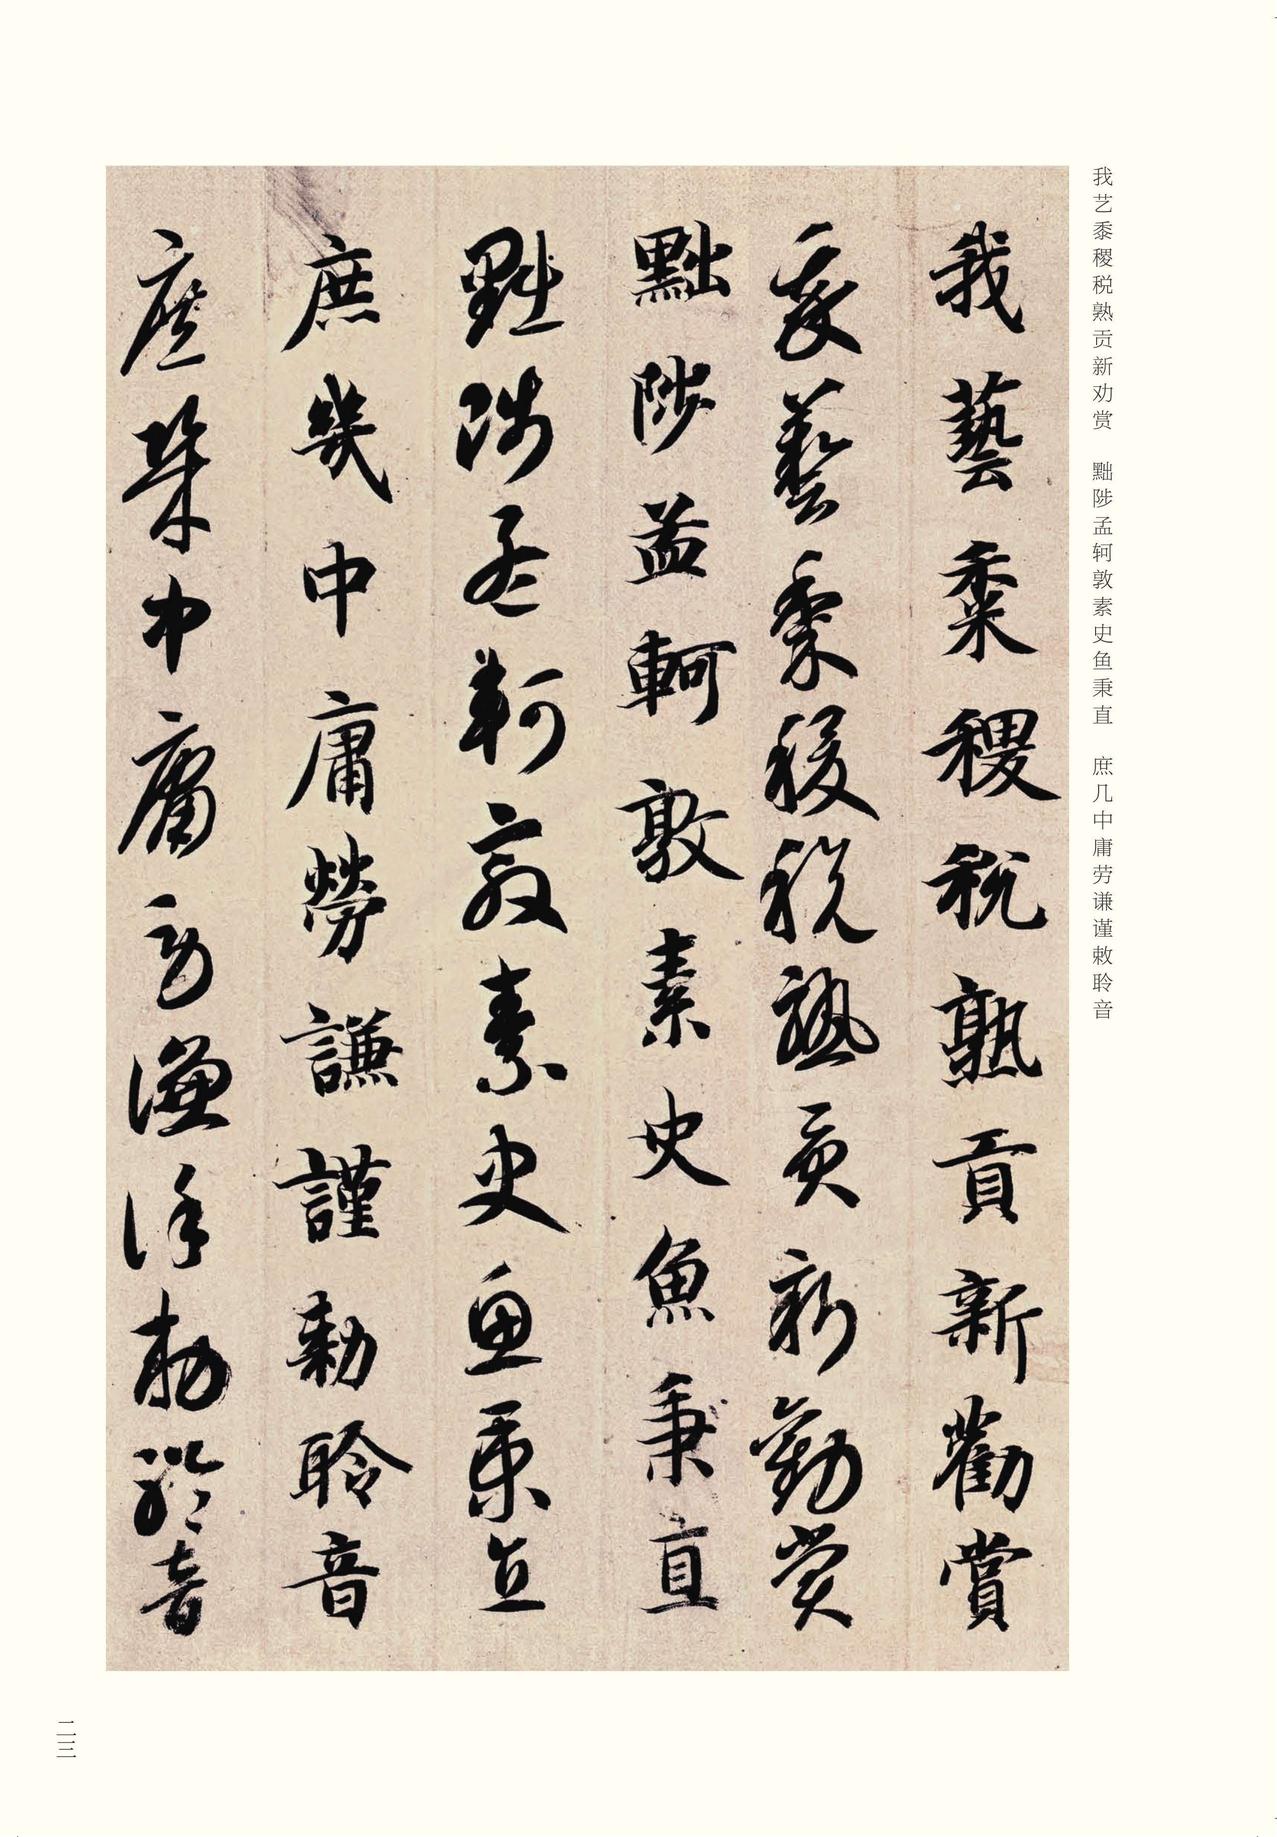 我艺黍稷税熟贡新劝赏　黜陟孟轲敦素史鱼秉直　庶几中庸劳谦谨敕聆音
我藝黍稷稅熟貢新勸賞
我藝黍稷稅熟貢新勸賞
黜陟孟軻敦素史魚秉直
黜陟孟軻敦素史魚秉直
庶幾中庸勞謙謹勅聆音
庶幾中庸勞謙謹勅聆音
二三